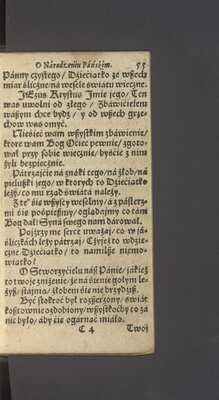 O Národzeniu Páńskim. 55
Pánny czystego / Dzieciatko ze wszech
miar śliczne / na wesele światu wieczne.
JEzus Krystus Jmie jego / Ten
was uwolni od złego / Zbáwicielem
wászym chce bydź / y od wszech grze-
chow was omyć.
Niebieć wam wszystkim zbáwienie /
ktore wam Bog Ociec pewnie / zgoto-
wał przy sobie wiecznie / byście z nim
żyli bezpiecznie.
Pátrzajcie na znáki tego / na żłob / ná
pieluszki jego / w ktorych to Dzieciatko
leży / co mu rząd świátá należy.
Z tęć się wszyscy weselmy / a z pásterz-
mi się pośpieszmy / ogladajmy co tam
Bog dał : Syná swego nam dárował.
Pojźrzy me serce uwazaj / co w já-
śliczkách leży pátrzaj / Czyjeż to wdzie-
czne Dzieciatko / to namilsze niemo-
wiatko!
O Stworzycielu náß Pánie / jákież
to twoje zniżenie / że ná siennie gołym le-
żyß / stájnią / żłobem sie nie brzydziß.
Być stokroć był rozszerzony / świát
kosztownie ozdobiony / wszystkoćby co zá
nic było / aby cie ogárnąć miáło.
C 4 Twoj